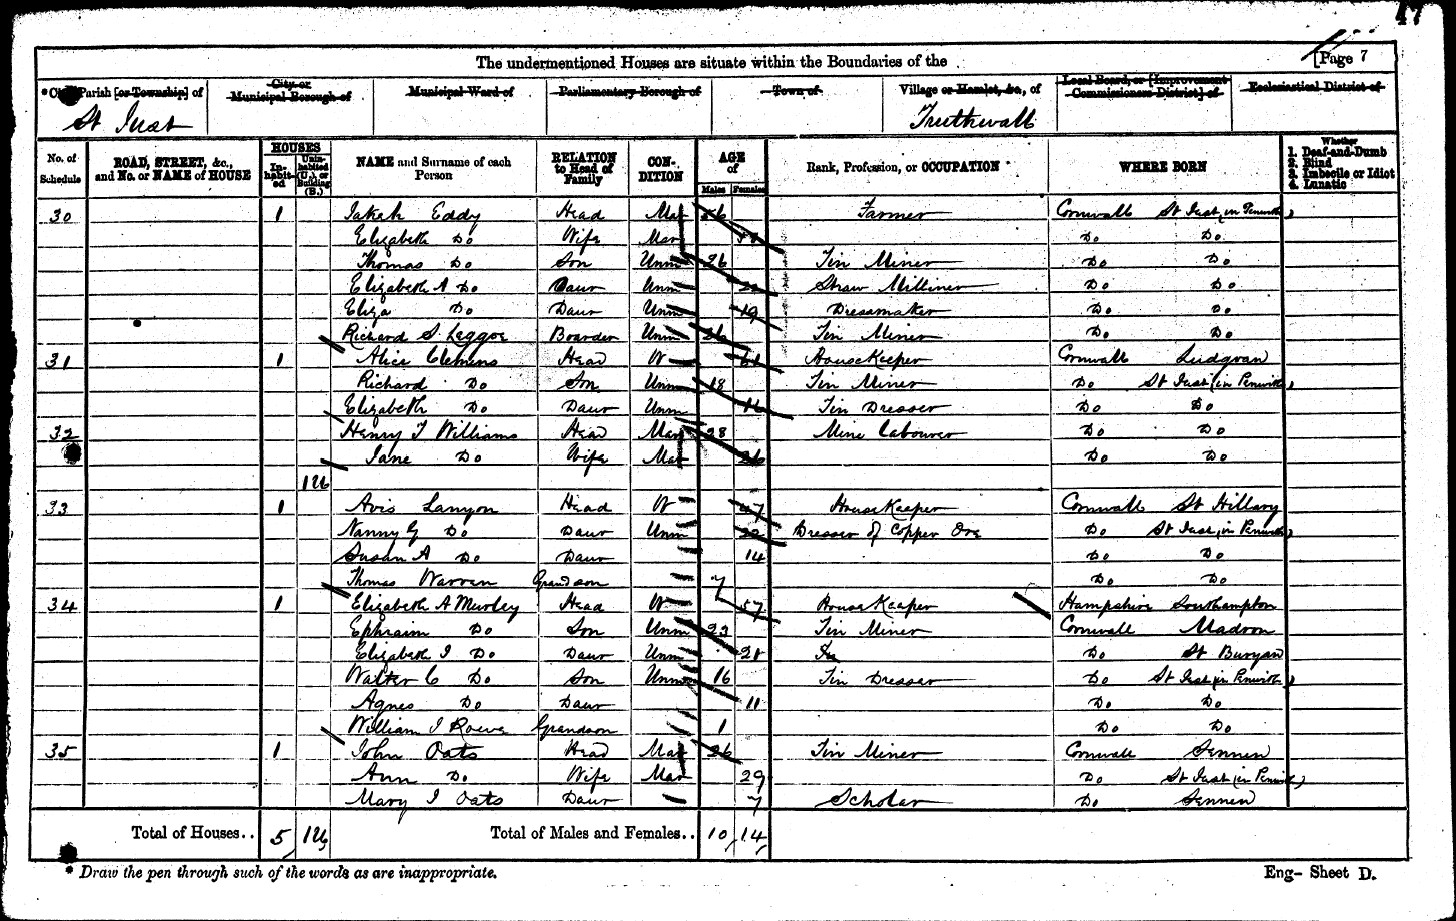 47
The undermentioned Houses are situate within the Boundaries of the
[Page 7
Parish [or Township] of
City or Municipal Borough of
Municipal Ward of
Parliamentary Borough of
Town of
Village or Hamlet, &c., of
Local Board, or [Improvement Commissioners District] of
Ecclesiastical District of
St Just
Truthwall
No. of Schedule
ROAD, STREET, &c., and No. or NAME of HOUSE
HOUSES
Inhabited
Uninhabited (U.), or Building (B.)
NAME and Surname of each Person
RELATION to Head of Family
CONDITION
AGE of
Males
Females
Rank, Profession, or OCCUPATION
WHERE BORN
Whether
1. Deaf-and-Dumb
2. Blind
3. Imbecile or Idiot
4. Lunatic
30 1 Jakeh Eddy Head Mar 56 Farmer Cornwall St Just (in Penwith)
Elizabeth Do Wife Mar Do Do
Thomas Do Son Unm 26 Tin Miner Do Do
Elizabeth A Do Daur Unm Straw Milliner Do Do
Eliza Do Daur Unm 19 Dressmaker Do Do
Richard S Leggoe Boarder Unm 26 Tin Miner Do Do
31 1 Alice Clemens Head W 61 HouseKeeper Cornwall Ludgvan
Richard Do Son Unm 18 Tin Miner Do St Just (in Penwith)
Elizabeth Do Daur Unm 16 Tin Dresser Do Do
32 Henry T Williams Head Mar 28 Mine Labourer Do Do
Jane Do Wife Mar 26 Do Do
1U
33 1 Avis Lanyon Head W 47 HouseKeeper Cornwall St Hillary
Nanny G Do Daur Unm Dresser of Copper Ore Do St Just (in Penwith)
Susan A Do Daur 14 Do Do
Thomas Warren Grandson 7 Do Do
34 1 Elizabeth A Murley Head W 57 HouseKeeper Hampshire Southampton
Ephraim Do Son Unm 23 Tin Miner Cornwall Madron
Elizabeth J Do Daur Unm 21 Do St Buryan
Walter C Do Son Unm 16 Tin Dresser Do St Just (in Penwith)
Agnes Do Daur 11 Do Do
William J Rowe Grandson 1 Do Do
35 1 John Oats Head Mar 26 Tin Miner Cornwall Sennen
Ann Do Wife Mar 29 Do St Just (in Penwith)
Mary J Oats Daur 7 Scholar Do Sennen
Total of Houses.. 5 1U Total of Males and Females.. 10 14
* Draw the pen through such of the words as are inappropriate.
Eng- Sheet D.